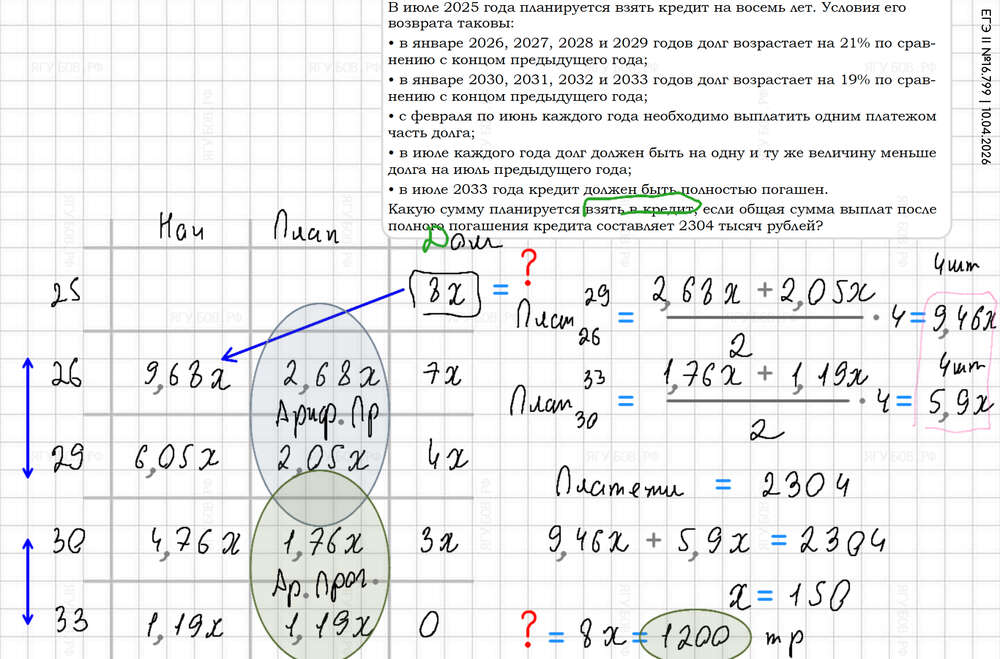 В июле 2025 года планируется взять кредит на восемь лет. Условия его
возврата таковы:
• в январе 2026, 2027, 2028 и 2029 годов долг возрастает на 21% по срав-
нению с концом предыдущего года;
• в январе 2030, 2031, 2032 и 2033 годов долг возрастает на 19% по срав-
нению с концом предыдущего года;
• с февраля по июнь каждого года необходимо выплатить одним платежом
часть долга;
• в июле каждого года долг должен быть на одну и ту же величину меньше
долга на июль предыдущего года;
• в июле 2033 года кредит должен быть полностью погашен.
Какую сумму планируется взять в кредит, если общая сумма выплат после
полного погашения кредита составляет 2304 тысяч рублей?
ЕГЭ II №16.799 | 10.04.2026
Нач Плат Долг
25 8x = ?
26 9,68x 2,68x 7x
Ариф. Пр
29 6,05x 2,05x 4x
30 4,76x 1,76x 3x
Ар. Прог.
33 1,19x 1,19x 0
4 шт
Плат 29 26 = 2,68x + 2,05x / 2 · 4 = 9,46x
4 шт
Плат 33 30 = 1,76x + 1,19x / 2 · 4 = 5,9x
Платежи = 2304
9,46x + 5,9x = 2304
x = 150
? = 8x = 1200 тр
ЯГУБОВ.РФ